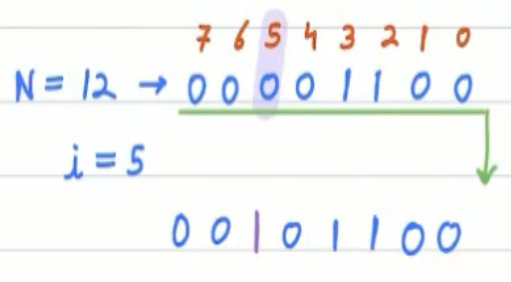 7 6 5 4 3 2 1 0
N = 12 → 0 0 0 0 1 1 0 0
i = 5
0 0 1 0 1 1 0 0